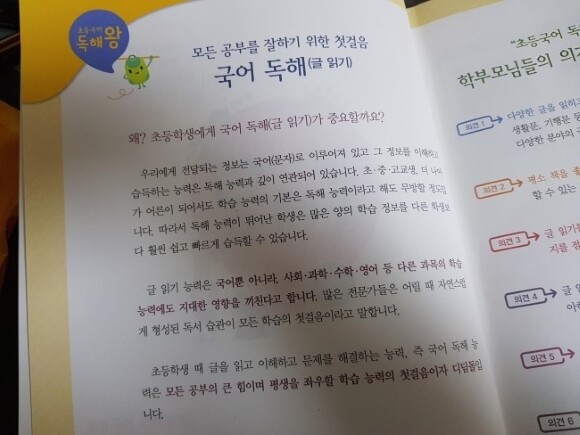 초등국어
독해왕
모든 공부를 잘하기 위한 첫걸음
국어 독해(글 읽기)
왜? 초등학생에게 국어 독해(글 읽기)가 중요할까요?
우리에게 전달되는 정보는 국어(문자)로 이루어져 있고 그 정보를 이해하고
습득하는 능력은 독해 능력과 깊이 연관되어 있습니다. 초·중·고교생, 더 나아
가 어른이 되어서도 학습 능력의 기본은 독해 능력이라고 해도 무방할 정도입
니다. 따라서 독해 능력이 뛰어난 학생은 많은 양의 학습 정보를 다른 학생보
다 훨씬 쉽고 빠르게 습득할 수 있습니다.
글 읽기 능력은 국어뿐 아니라, 사회·과학·수학·영어 등 다른 과목의 학습
능력에도 지대한 영향을 끼친다고 합니다. 많은 전문가들은 어릴 때 자연스럽
게 형성된 독서 습관이 모든 학습의 첫걸음이라고 말합니다.
초등학생 때 글을 읽고 이해하고 문제를 해결하는 능력, 즉 국어 독해 능
력은 모든 공부의 큰 힘이며 평생을 좌우할 학습 능력의 첫걸음이자 디딤돌입
니다.
"초등국어 독
학부모님들의 의
의견 1
다양한 글을
생활문, 기행문 등
다양한 분야의
의견 2
평소 책을
할 수 있는
의견 3
글 읽기
지를
의견 4
글
의견 5
의견 6